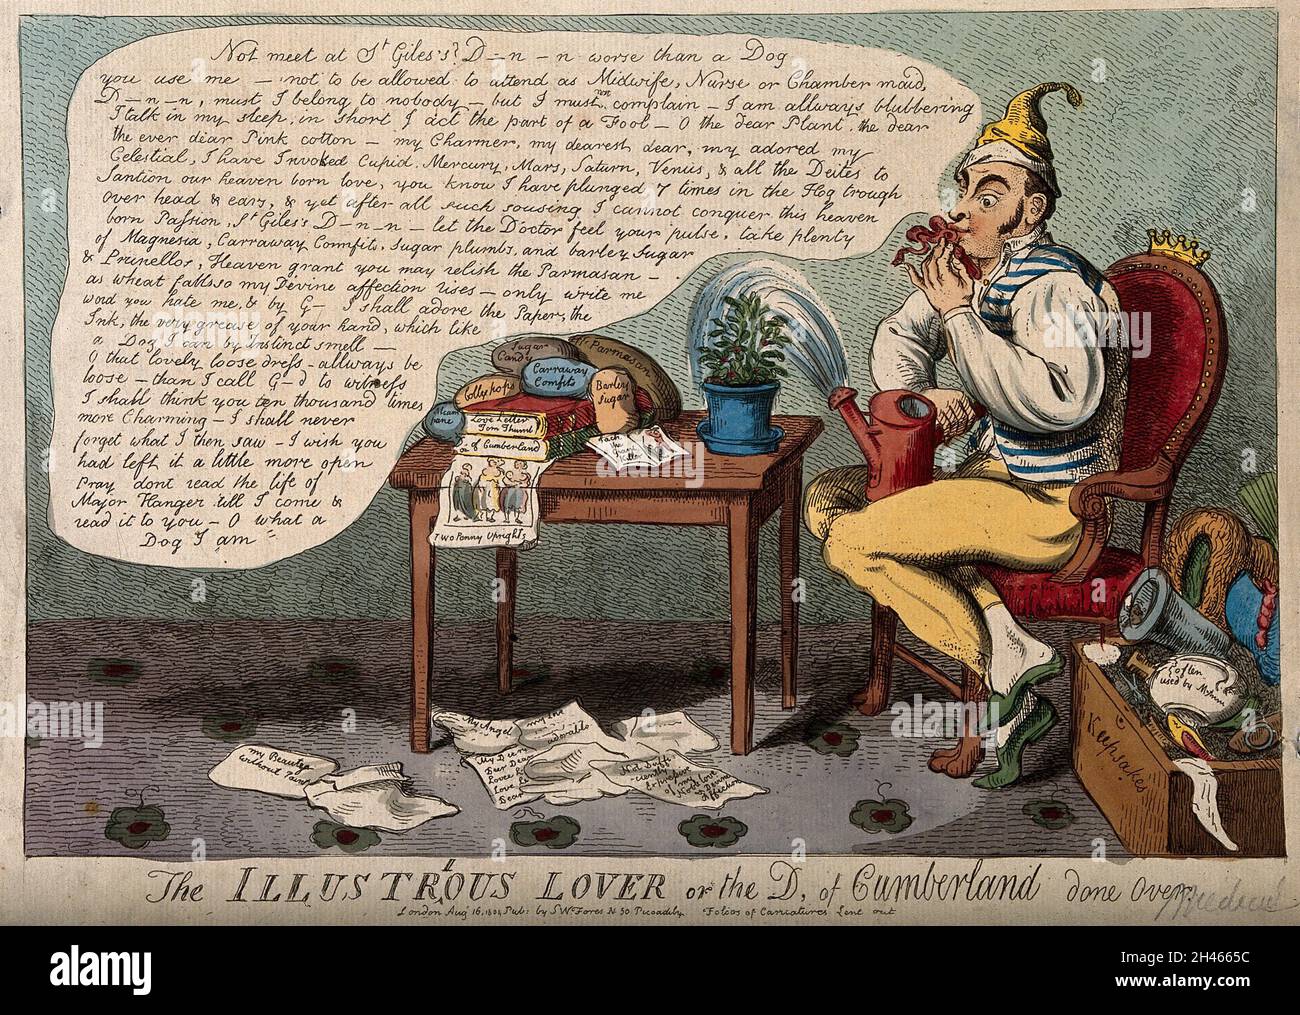 Not meet at St Giles's? D–n–n worse than a Dog
you use me – not to be allowed to attend as Midwife, Nurse or Chamber maid,
D–n–n, must I belong to nobody – but I must not complain – I am allways blubbering
I talk in my sleep, in short I act the part of a Fool – O the dear Plant, the dear
the ever dear Pink cotton – my Charmer, my dearest dear, my adored my
Celestial, I have Invoked Cupid, Mercury, Mars, Saturn, Venus, & all the Deites to
Santion our heaven born love, you know I have plunged 7 times in the Hog trough
over head & ears, & yet after all such sousing I cannot conquer this heaven
born Passion, St Giles's D–n–n – let the Doctor feel your pulse, take plenty
of Magnesia, Carraway Commfits, Sugar plumbs, and barley Sugar
& Prunellos, Heaven grant you may relish the Parmasan –
as wheat falls so my Devine affection rises – only write me
word you hate me, & by G– I shall adore the Paper, the
Ink, the very grease of your hand, which like
a Dog I can by Instinct smell –
O that lovely loose dress – allways be
loose – than I call G–d to witness
I shall think you ten thousand times
more Charming – I shall never
forget what I then saw – I wish you
had left it a little more open
Pray dont read the life of
Major Hanger till I come &
read it to you – O what a
Dog I am
Sugar
Candy
Parmasan
Carraway
Comfits
Barley
Sugar
Lollypops
Love Letter
Tom Thumb
of Cumberland
Jack
the
Giant
Killer
Two Penny Uprights
My Angel
adorable
my Beauty
without Paint
My Dear
Dear Dear
Love
Dear
often
used by
Keepsakes
The ILLUSTRIOUS LOVER or the D. of Cumberland done Over.
London Aug 16, 1804 Pub: by S W Fores N 50 Piccadilly Folios of Caricatures Lent out
alamy
Image ID: 2H4665C
www.alamy.com